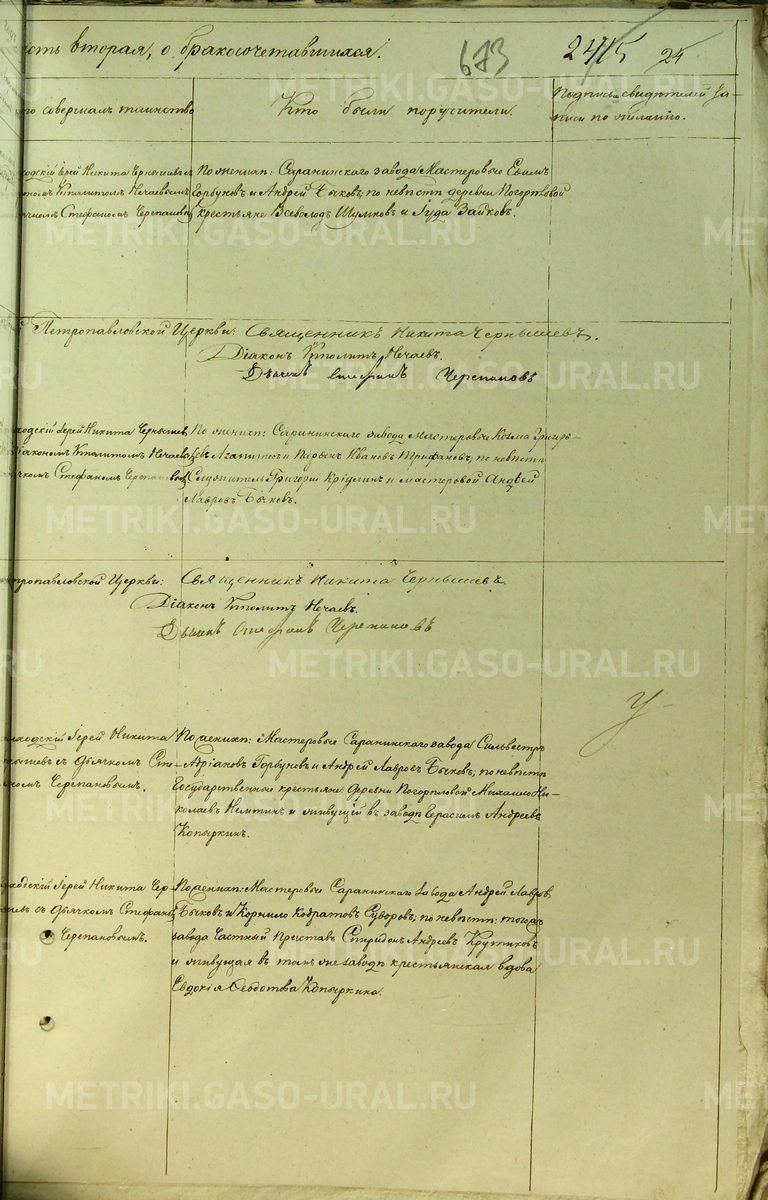 сть вторая, о бракосочетавшихся.
673 2415 24
то совершалъ таинство
Кто были поручители.
Подпись свидѣтелей за-
писи по желанію.
ходскій Іерей Никита Чернышевъ съ
Діакономъ Ипполитомъ Нечаевымъ
дьячкомъ Стефаномъ Черепановымъ
По женихѣ: Саранинскаго завода Мастеровые Ефимъ
Горбуновъ и Андрей Бычковъ; по невѣстѣ деревни Погорѣловой
крестьяне Всеволодъ Шумковъ и Іуда Зайковъ.
Петропавловской Церкви: Священникъ Никита Чернышевъ.
Діаконъ Ипполитъ Нечаевъ.
Дьячекъ Стефанъ Черепановъ
ходскій Іерей Никита Чернышев
Діакономъ Ипполитомъ Нечаев
чкомъ Стефаномъ Черепановы
По женихѣ: Саранинскаго завода мастеровые Козма Григорь-
евъ Агапитовъ и Парѳенъ Ивановъ Трифановъ; по невѣстѣ
Служитель Григорій Кріулинъ и мастеровой Андрей
Лавровъ Бычковъ.
тропавловской Церкви: Священникъ Никита Чернышевъ
Діаконъ Ипполитъ Нечаевъ.
Дьячекъ Стефанъ Черепановъ
У
риходскій Іерей Никита
нышевъ съ дьячкомъ Сте-
номъ Черепановымъ.
По женихѣ: Мастеровые Саранинскаго завода Сильвестръ
Адріановъ Горбуновъ и Андрей Лавровъ Бычковъ; по невѣстѣ
Государственные крестьяне деревни Погорѣловой Михайло Ни-
колаевъ Немтинъ и живущій въ заводѣ Герасимъ Андреевъ
Копыркинъ.
риходскій Іерей Никита Чер-
шевъ съ дьячкомъ Стефаномъ
Черепановымъ.
По женихѣ: Мастеровые Саранинскаго завода Андрей Лавровъ
Бычковъ и Корнило Кодратовъ Суворовъ; по невѣстѣ: тогожъ
завода Частный Приставъ Спиридонъ Андреевъ Крутиковъ
и живущая въ томъ же заводѣ крестьянская вдова
Евдокія Ѳедотова Копыркина.
METRIKI.GASO-URAL.RU